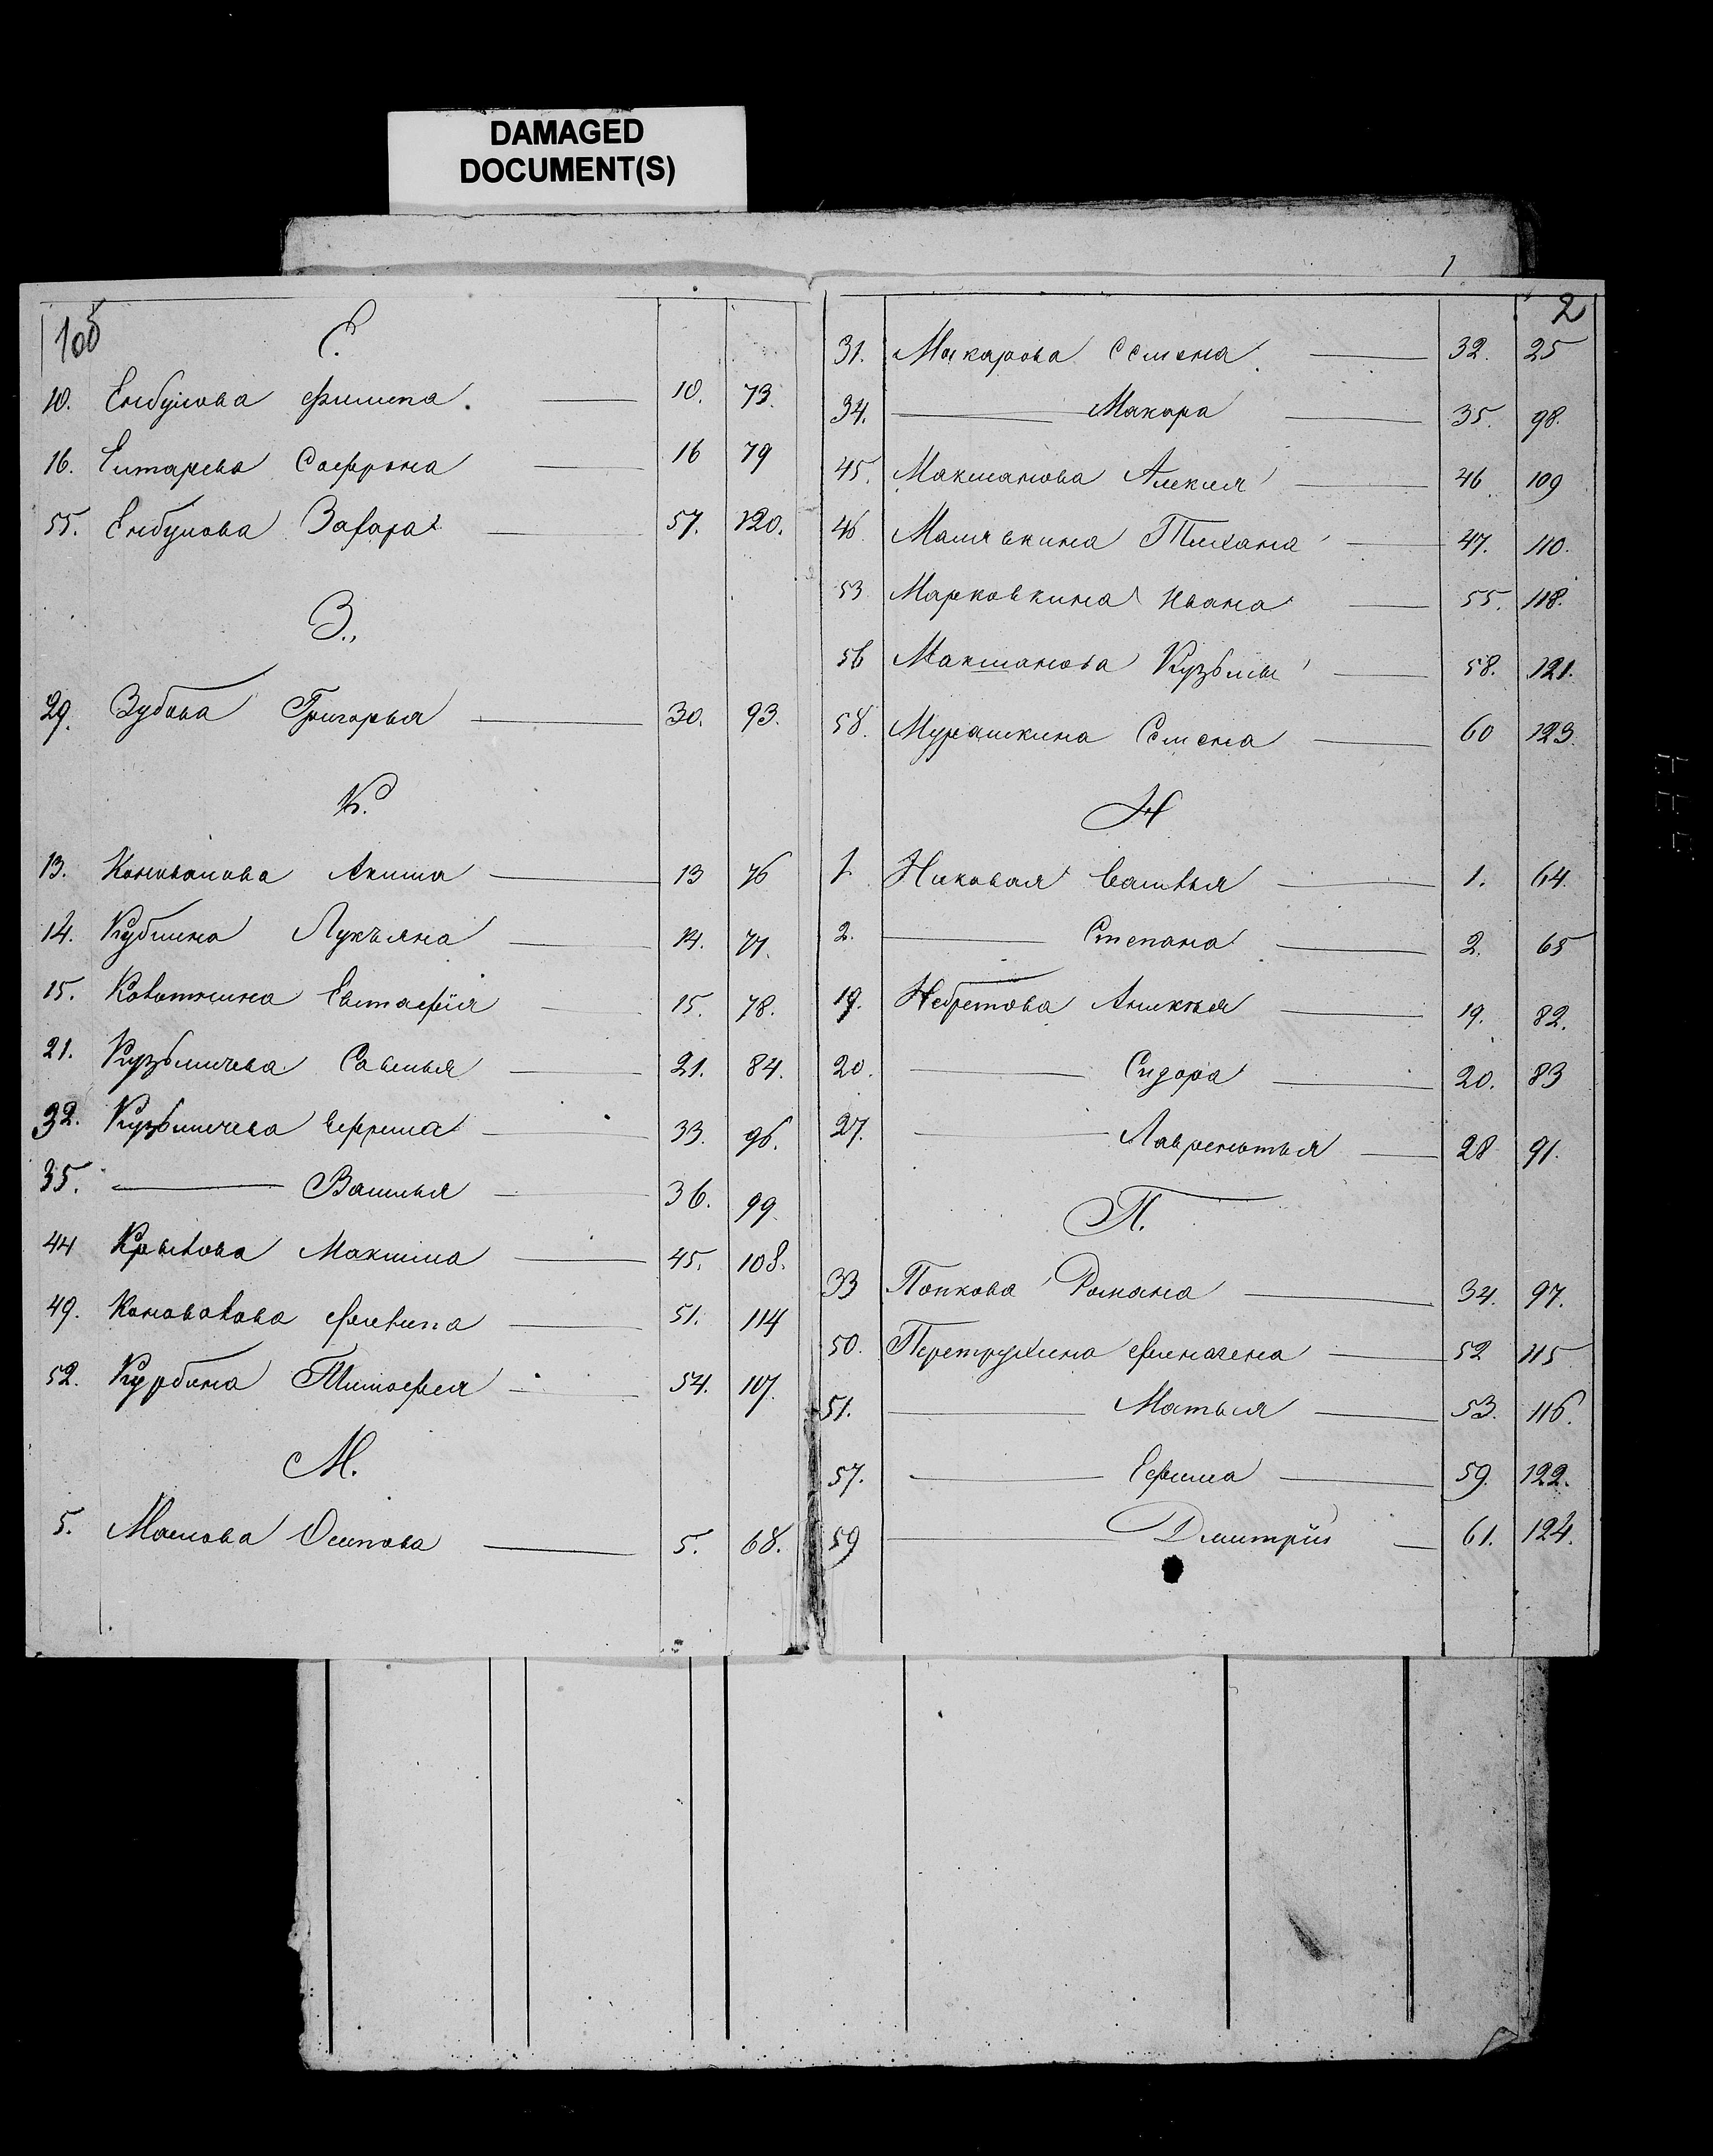 DAMAGED
DOCUMENT(S)
1
1об
Е.
10. Енбулова Филипа. 10. 73.
16. Епифарева Сафрона 16 79
55. Енбулова Захара 57. 120.
З.
29. Зубова Григорья 30. 93.
К.
13. Акима 13 76
14. Кубшина Лукъяна 14. 77.
15. Евстафія 15. 78.
21. Кузьмичева Савелья 21. 84.
32. Кузьмичева Ефрема 33. 96.
35. Василья 36. 99
44 Крылова Максима 45. 108.
49. Коновалова Филипа 51. 114
52. Курбина Тимофея 54. 107.
М.
5. Осипова 5. 68.
2
31. Макарова Семена 32. 25
34. Макара 35. 98.
45. Макшанова Алексея 46 109
46. Малявкина Тихана 47. 110.
53 Марковкина Ивана 55. 118.
56 Макшанова Кузьмы 58. 121.
58. Мурашкина Семена 60 123.
Н
1. Василья 1. 64.
2. Степана 2. 65
19. 19. 82.
20. Сидора 20. 83
27. Лаврентья 28 91.
П.
33 Попкова Романа 34. 97.
50. Петрухина 52 115
51. Матвея 53. 116.
57. Ефима 59. 122.
59 Дмитрія 61. 124.